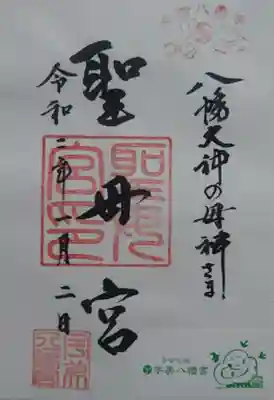 八幡大神の母神さま
聖母宮
令和二年一月二日
聖母宮印
宇美八幡宮